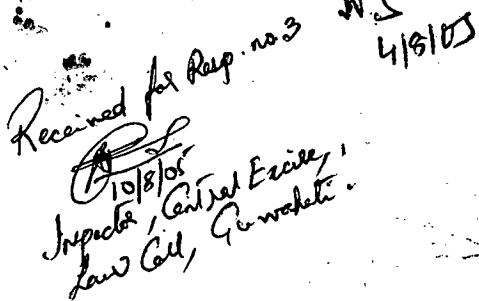 N.S
4/8/05
Received for Resp. no. 3
10/8/05
Inspector, Central Excise,
Law Cell, Guwahati.